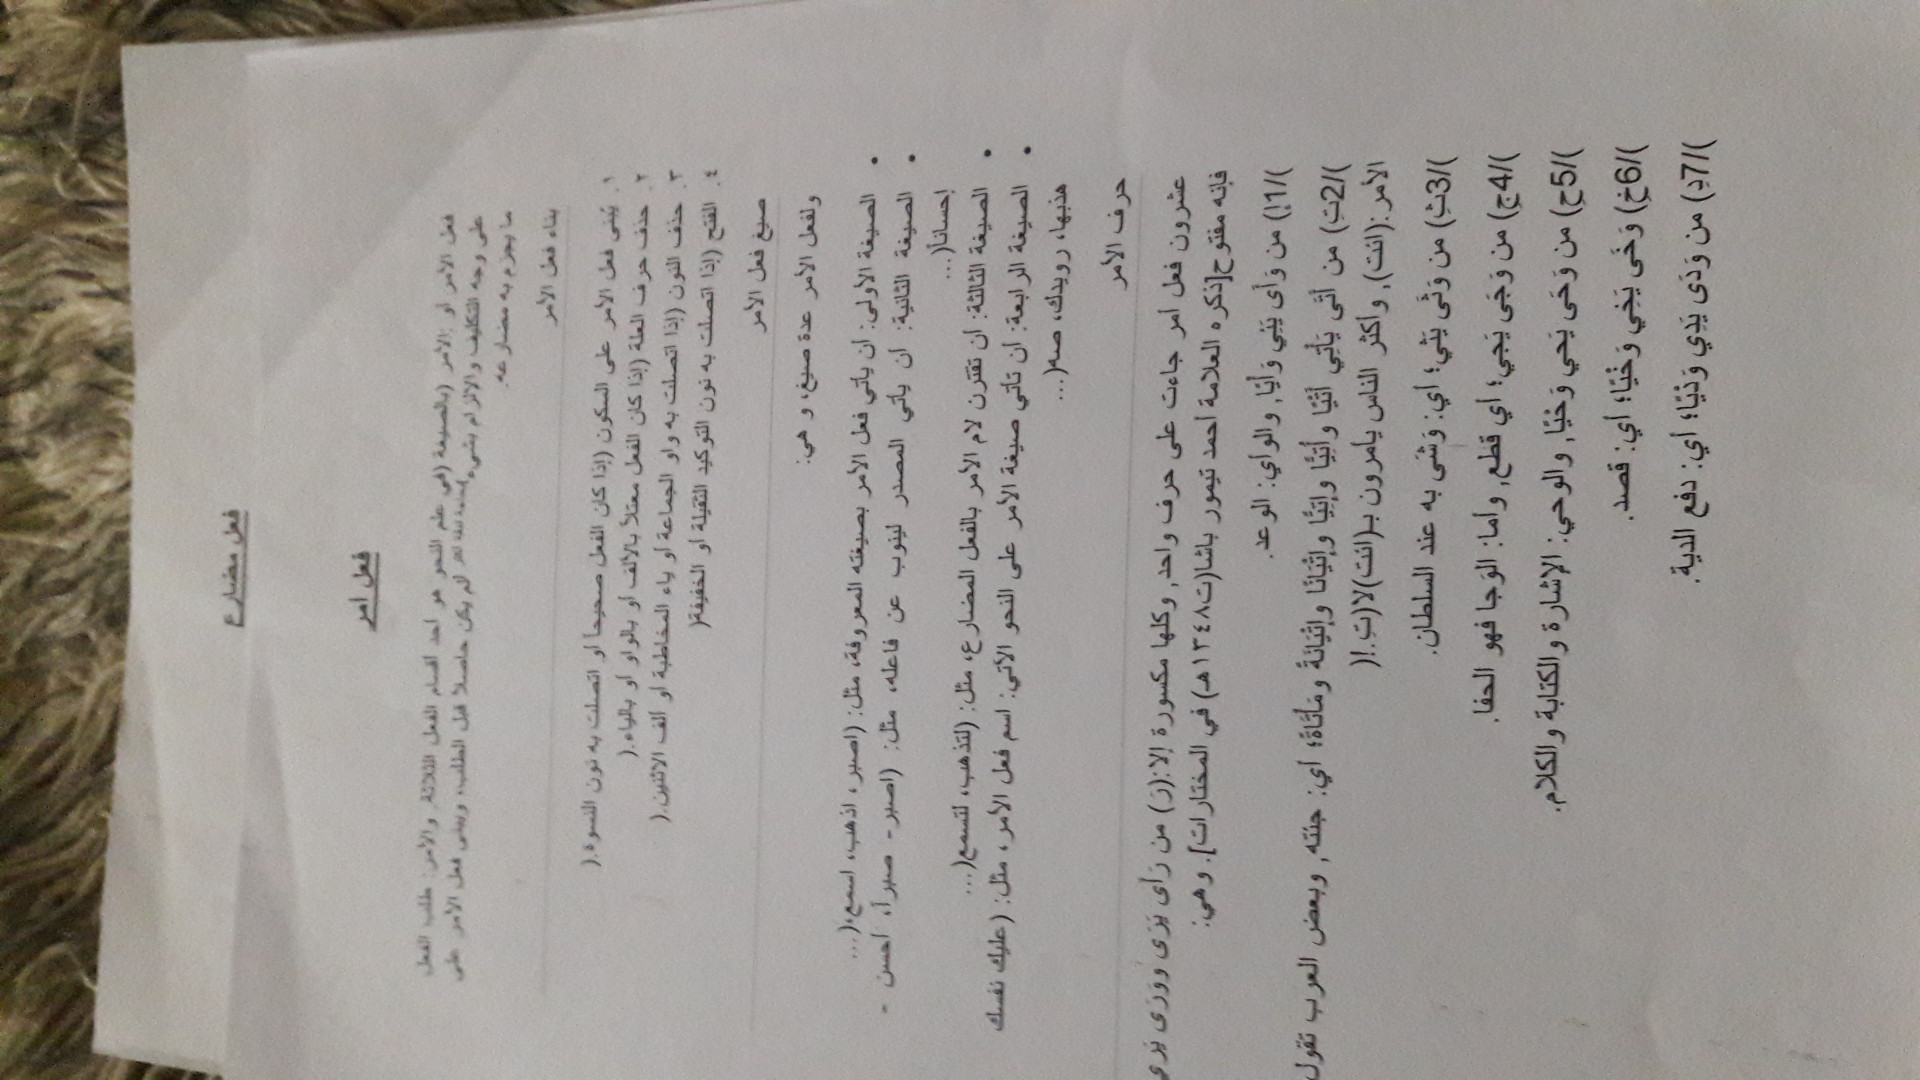 فعل مضارع
فعل امر
فعل الأمر أو الأمر (بالصيغة (في علم النحو هو أحد أقسام الفعل الثلاثة. والأمر: طلب الفعل
على وجه التكليف والإلزام بشيء لم يكن حاصلا قبل الطلب، ويبنى فعل الأمر على
ما يجزم به مضارعه.
بناء فعل الأمر
١. يُبنى فعل الأمر على السكون (إذا كان الفعل صحيحا أو اتصلت به نون النسوة.(
٢. حذف حرف العلة (إذا كان الفعل معتلاً بالألف أو بالواو أو بالياء.(
٣. حذف النون (إذا اتصلت به واو الجماعة أو ياء المخاطبة أو ألف الاثنين.(
٤. الفتح (إذا اتصلت به نون التوكيد الثقيلة أو الخفيفة(
صيغ فعل الأمر
ولفعل الأمر عدة صيغ، وهي:
• الصيغة الأولى: أن يأتي فعل الأمر بصيغته المعروفة، مثل: (اصبر، اذهب، اسمع،(...
• الصيغة الثانية: أن يأتي المصدر لينوب عن فاعله، مثل: (اصبر- صبراً، أحسن -
إحساناً(...
• الصيغة الثالثة: أن تقترن لام الأمر بالفعل المضارع، مثل: (لتذهب، لتسمع(...
• الصيغة الرابعة: أن تأتي صيغة الأمر على النحو الآتي: اسم فعل الأمر، مثل: (عليك نفسك
هذبها، رويدك، صه(...
حرف الأمر
عشرون فعل أمر جاءت على حرف واحد, وكلها مكسورة إلا:(رَ) من رَأى يَرَى ووَرَى يَرَى
فإنه مفتوح[ذكره العلامة أحمد تيمور باشا(ت١٣٤٨هـ) في المختارات]. وهي:
)/1إِ) من وَأَى يَئِي وَأْيًا, والوأي: الوعد.
)/2تِ) من أَتَى يَأْتِي أَتْيًا وأُتِيًّا وإِتِيًّا وإِتْيَانًا وإِتْيَانَةً ومَأْتَاةً؛ أي: جئته, وبعض العرب تقول
الأمر:(ائت), وأكثر الناس يأمرون بـ(ائت)لا(تِ.!(
)/3ثِ) من وَثَى يَثِي؛ أي: وَشَى به عند السلطان.
)/4جِ) من وَجَى يَجِي؛ أي قطع, وأما: الوَجا فهو الحفا.
)/5حِ) من وَحَى يَحِي وَحْيًا, والوحي: الإشارة والكتابة والكلام.
)/6خِ) وَخَى يَخِي وَخْيًا؛ أي: قصد.
)/7دِ) من وَدَى يَدِي وَدْيًا؛ أي: دفع الدية.